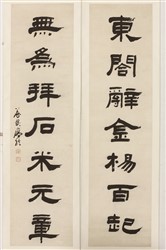 東閣辭金楊百起
無為拜石米元章